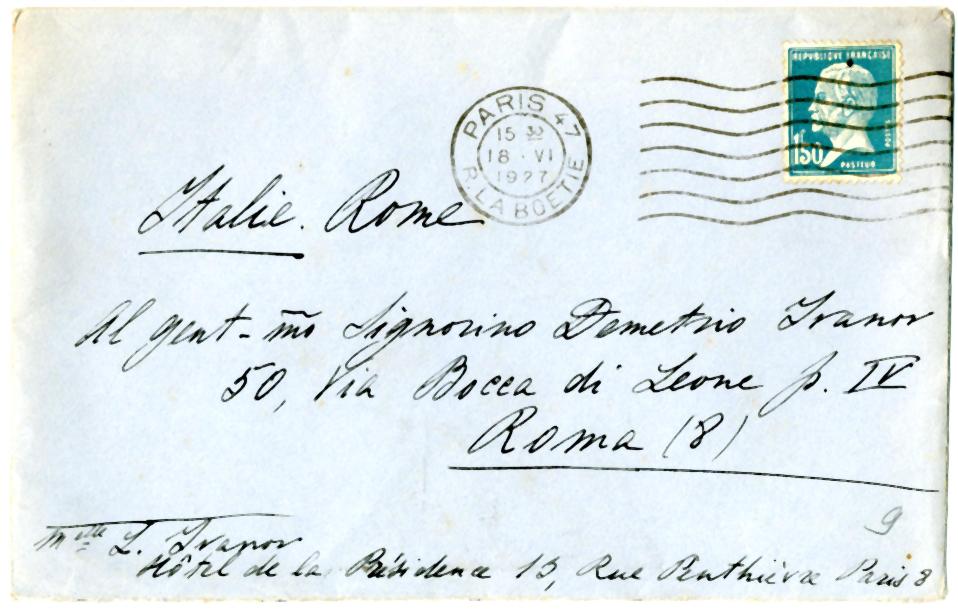 REPUBLIQUE FRANÇAISE
1f50
POSTES
PASTEUR
PARIS 47
15 30
18 · VI
1927
R. LA BOETIE
Italie. Rome
Al gent-mo Signorino Demetrio Ivanov
50, Via Bocca di Leone p. IV
Roma (8)
9
Melle L. Ivanov
Hôtel de la Résidence 15, Rue Penthièvre Paris 8